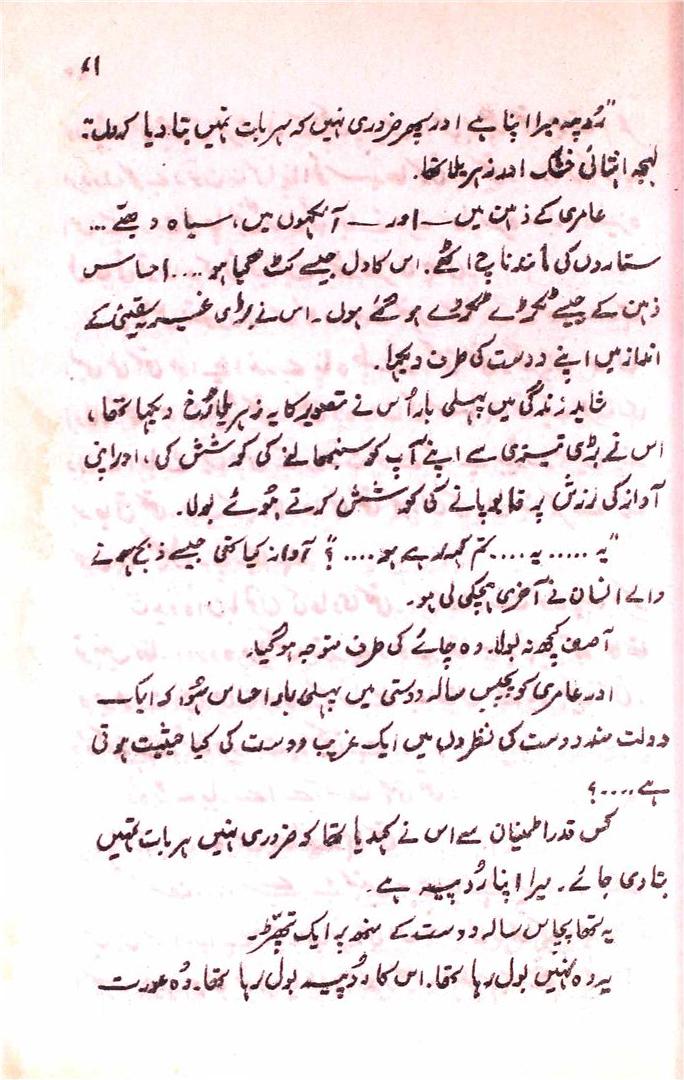 ۴۱
"رُوپیہ میرا اپنا ہے اور پھر ضروری نہیں کہ ہر بات تمہیں بتا دیا کروں"
لہجہ انتہائی خشک اور زہریلا تھا۔
عامری کے ذہن میں — اور — آنکھوں میں، سیاہ دھبے...
ستاروں کی مانند ناچ اٹھے۔ اس کا دل جیسے کٹ گیا ہو.... احساس
ذہن کے جیسے ٹکڑے ٹکڑے ہو گئے ہوں۔ اس نے بڑی غیر یقینی کے
انداز میں اپنے دوست کی طرف دیکھا۔
شاید زندگی میں پہلی بار اُس نے تصویر کا یہ زہریلا رُخ دیکھا تھا،
اس نے بڑی تیزی سے اپنے آپ کو سنبھالنے کی کوشش کی، اور اپنی
آواز کی لرزش پر قابو پانے کی کوشش کرتے ہُوئے بولا۔
"یہ ..... یہ .... تم کہہ رہے ہو .... ؟" آواز کیا تھی جیسے ذبح ہونے
والے انسان نے آخری ہچکی لی ہو۔
آصف کچھ نہ بولا۔ وہ چائے کی طرف متوجہ ہو گیا۔
اور عامری کو پچیس سالہ دوستی میں پہلی بار احساس ہُوا کہ ایک
دولت مند دوست کی نظروں میں ایک غریب دوست کی کیا حیثیت ہوتی
ہے....؟
کس قدر اطمینان سے اس نے کہدیا تھا کہ ضروری نہیں ہر بات تمہیں
بتا دی جائے۔ میرا اپنا رُوپیہ ہے۔
یہ تھا پچاس سالہ دوست کے منھ پر ایک تھپّڑ۔
یہ وہ نہیں بول رہا تھا۔ اس کا روُپیہ بول رہا تھا۔ وُہ عورت